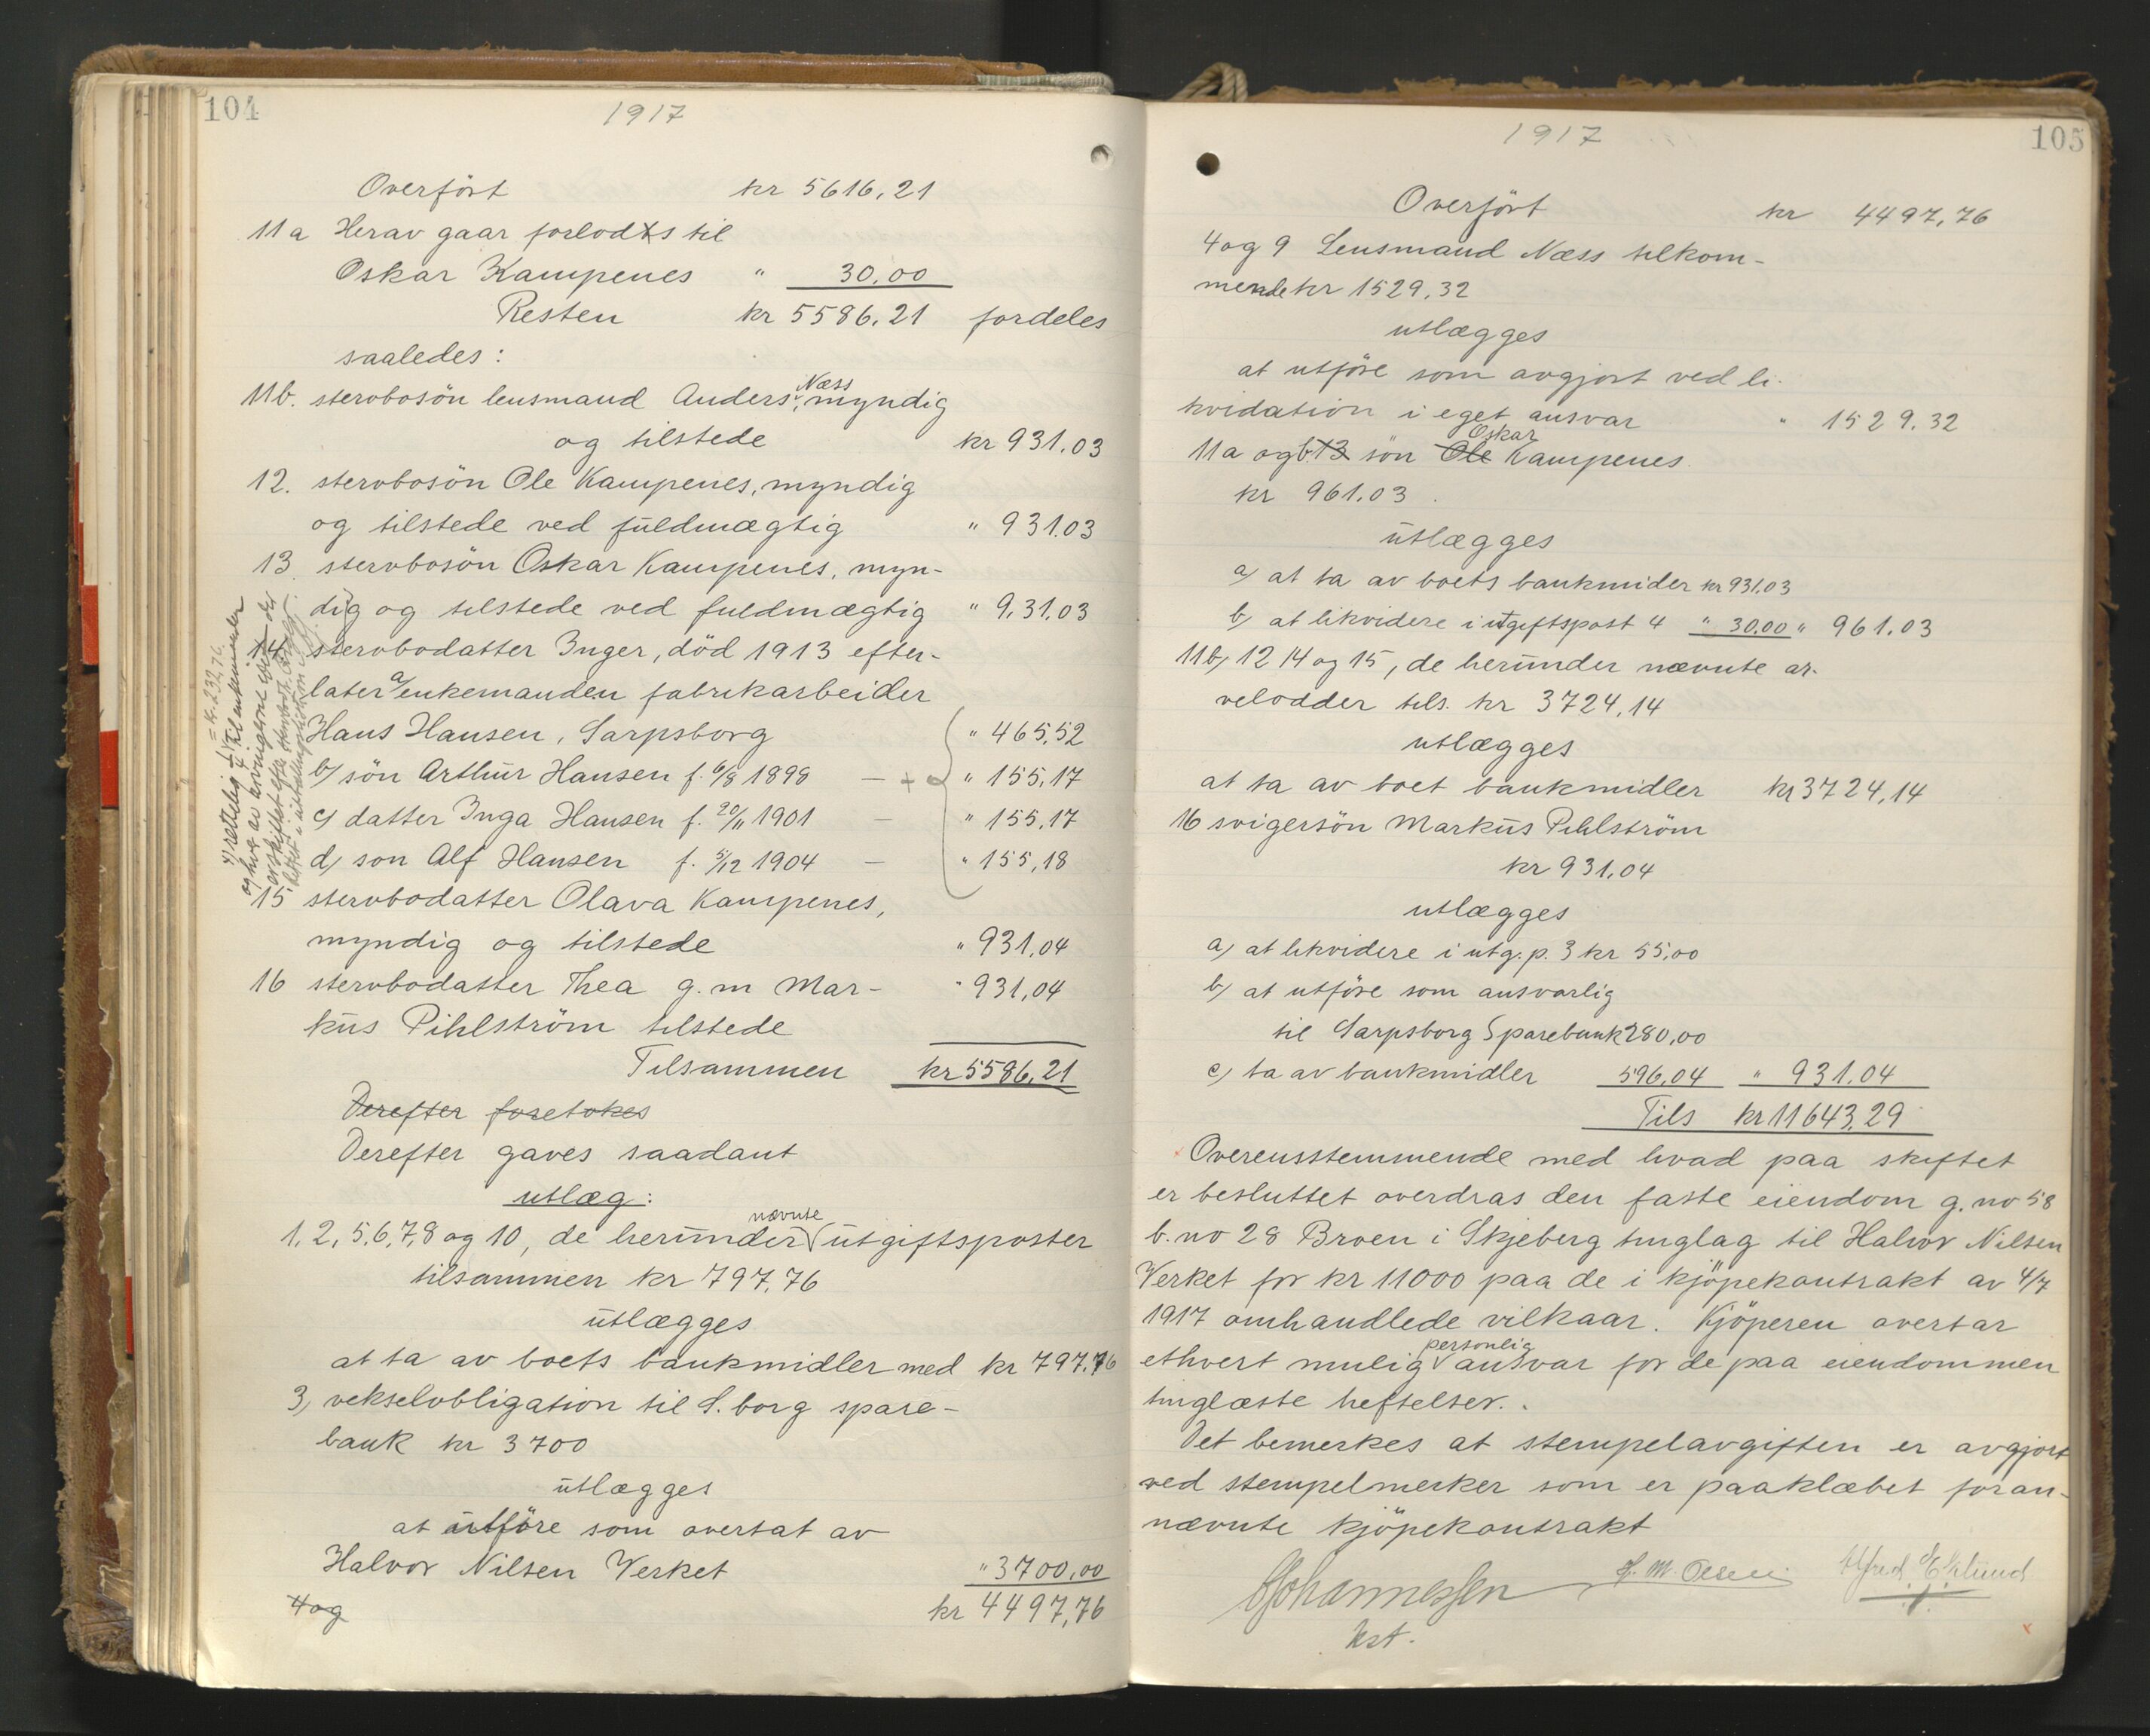 104
1917
Overført kr 5616,21
11a Herav gaar forlods til
Oskar Kampenes " 30,00
Resten kr 5586,21 fordeles
saaledes:
11b. stervbosön lensmand Anders Næss, myndig
og tilstede kr 931.03
12. stervbosön Ole Kampenes, myndig
og tilstede ved fuldmægtig " 931.03
13. stervbosön Oskar Kampenes, myn-
dig og tilstede ved fuldmægtig " 9,31,03
14 stervbodatter Inger, död 1913 efter-
later a/ enkemanden fabrikarbeider
Hans Hansen, Sarpsborg " 465,52
b/ sön Arthur Hansen f. 6/8 1898 — " 155,17
c/ datter Inga Hansen f. 20/11 1901 — " 155,17
d/ son Alf Hansen f. 5/12 1904 — " 155,18
15 stervbodatter Olava Kampenes,
myndig og tilstede " 931,04
16 stervbodatter Thea g. m Mar- " 931,04
kus Pihlström tilstede
Tilsammen kr 5586,21
Derefter foretokes
Derefter gaves saadant
utlæg:
1, 2, 5, 6, 7, 8 og 10, de herunder nævnte utgiftsposter
tilsammen kr 797,76
utlægges
at ta av boets bankmidler med kr 797,76
3, vekselobligation til S. borg spare-
bank kr 3700
utlægges
at utföre som overtat av
Halvor Nilsen Verket " 3700,00
4 og kr 4497,76
x) rettelig 1/4 til enkemanden
= kr. 232,76
og hver av arvingerne
105
1917
Overfört kr 4497,76
4 og 9 Lensmand Næss tilkom-
mende kr 1529,32
utlægges
at utföre som avgjort ved li-
kvidation i eget ansvar " 1529.32
11a og b. 13 sön Ole Oskar Kampenes
kr 961.03.
utlægges
a/ at ta av boets bankmider kr 931,03
b/ at likvidere i utgiftspost 4 " 30,00 " 961.03
11b, 12 14 og 15, de herunder nævnte ar-
velodder tils. kr 3724,14
utlægges
at ta av boet bankmidler kr 3724,14
16 svigersön Markus Pihlström
kr 931,04
utlægges
a/ at likvidere i utg. p. 3 kr 55,00
b/ at utföre som ansvarlig
til Sarpsborg Sparebank 280,00
c/ ta av bankmidler 596,04 " 931,04
Tils kr 11643,29
Overensstemmende med hvad paa skiftet
er besluttet overdras den faste eiendom g. no 58
b. no 28 Broen i Skjeberg tinglag til Halvor Nilsen
Verket for kr 11000 paa de i kjöpekontrakt av 4/7
1917 omhandlede vilkaar. Kjöperen overtar
ethvert mulig personlig ansvar for de paa eiendommen
tinglæste heftelser.
Det bemerkes at stempelavgiften er avgjort
ved stempelmerker som er paaklæbet foran-
nævnte kjöpekontrakt
Johannessen
kst.